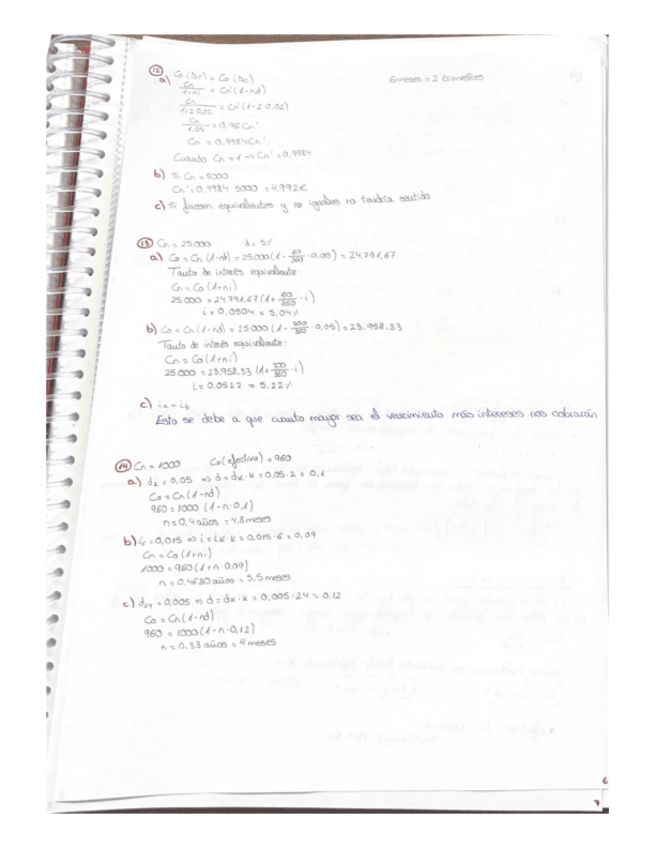 12
a) Co (Dr) = Co (Dc)
6 meses = 2 trimestres
Cn / 1+ni = Cn' (1-nd)
Cn / 1+2·0,02 = Cn' (1-2·0,02)
Cn / 1,04 = 0,96 Cn'
Cn = 0,9984 Cn'
Cuando Cn = 1 → Cn' = 0,9984
b) Si Cn = 5000
Cn' = 0,9984 · 5000 = 4.992€
c) Si fuesen equivalentes y no iguales no tendría sentido
13 Cn = 25.000 d = 5%
a) Co = Cn (1-nd) = 25.000 (1 - 60/360 · 0,05) = 24.791,67
Tanto de interés equivalente:
Cn = Co (1+ni)
25.000 = 24.791,67 (1 + 60/360 · i)
i = 0,0504 = 5,04%
b) Co = Cn (1-nd) = 25.000 (1 - 300/360 · 0,05) = 23.958,33
Tanto de interés equivalente:
Cn = Co (1+ni)
25.000 = 23.958,33 (1 + 300/360 · i)
i = 0,0522 = 5,22%
c) ia < ib
Esto se debe a que cuanto mayor sea el vencimiento más intereses nos cobrarán
14 Cn = 1000 Co (efectivo) = 960
a) d2 = 0,05 ⇒ d = dk · k = 0,05 · 2 = 0,1
Co = Cn (1-nd)
960 = 1000 (1-n·0,1)
n = 0,4 años = 4,8 meses
b) = 0,015 ⇒ i = ik · k = 0,015 · 6 = 0,09
Cn = Co (1+ni)
1000 = 960 (1+n·0,09)
n = 0,4630 años = 5,5 meses
c) d24 = 0,005 ⇒ d = dk · k = 0,005 · 24 = 0,12
Co = Cn (1-nd)
960 = 1000 (1-n·0,12)
n = 0,33 años = 4 meses
6
7